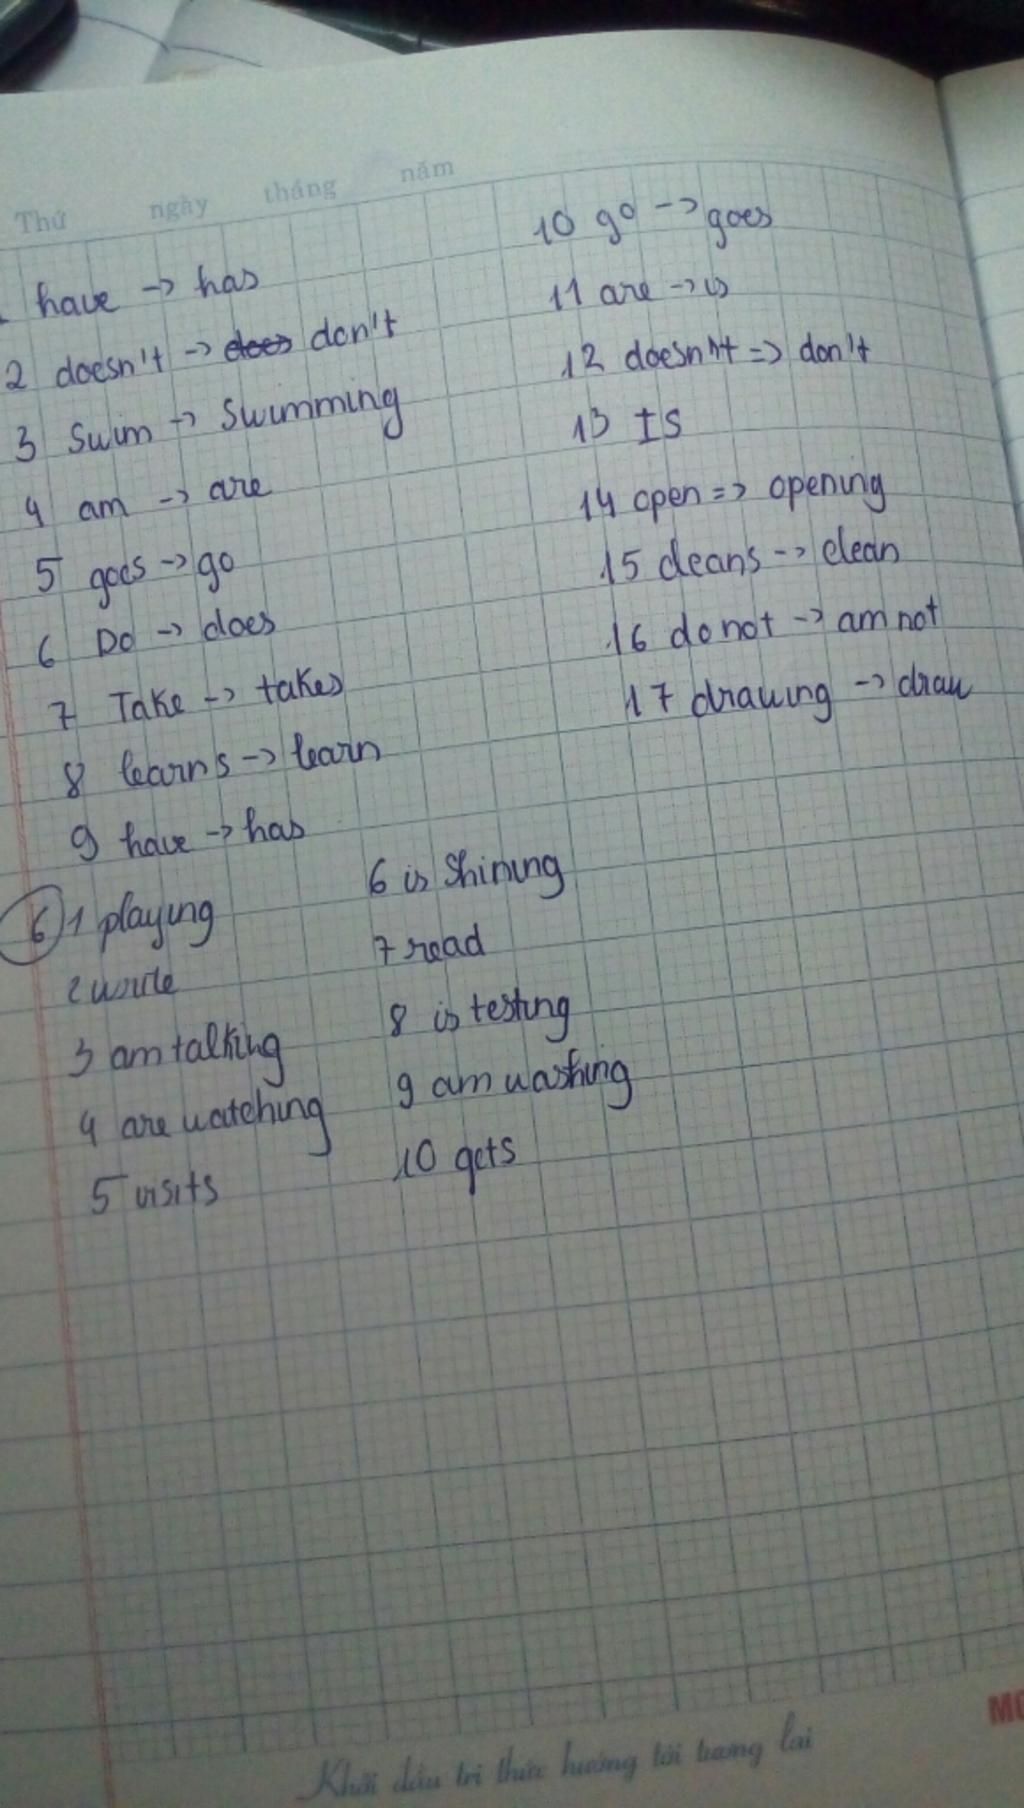 Thứ ngày tháng năm
have -> has
2 doesn't -> does don't
3 Swim -> Swimming
4 am -> are
5 goes -> go
6 Do -> does
7 Take -> takes
8 learns -> learn
9 have -> has
10 go -> goes
11 are -> is
12 doesn't => don't
13 Is
14 open => opening
15 cleans -> clean
16 do not -> am not
17 drawing -> draw
6 1 playing
2 write
3 am talking
4 are watching
5 visits
6 is Shining
7 read
8 is testing
9 am washing
10 gets
Khởi đầu tri thức hướng tới tương lai